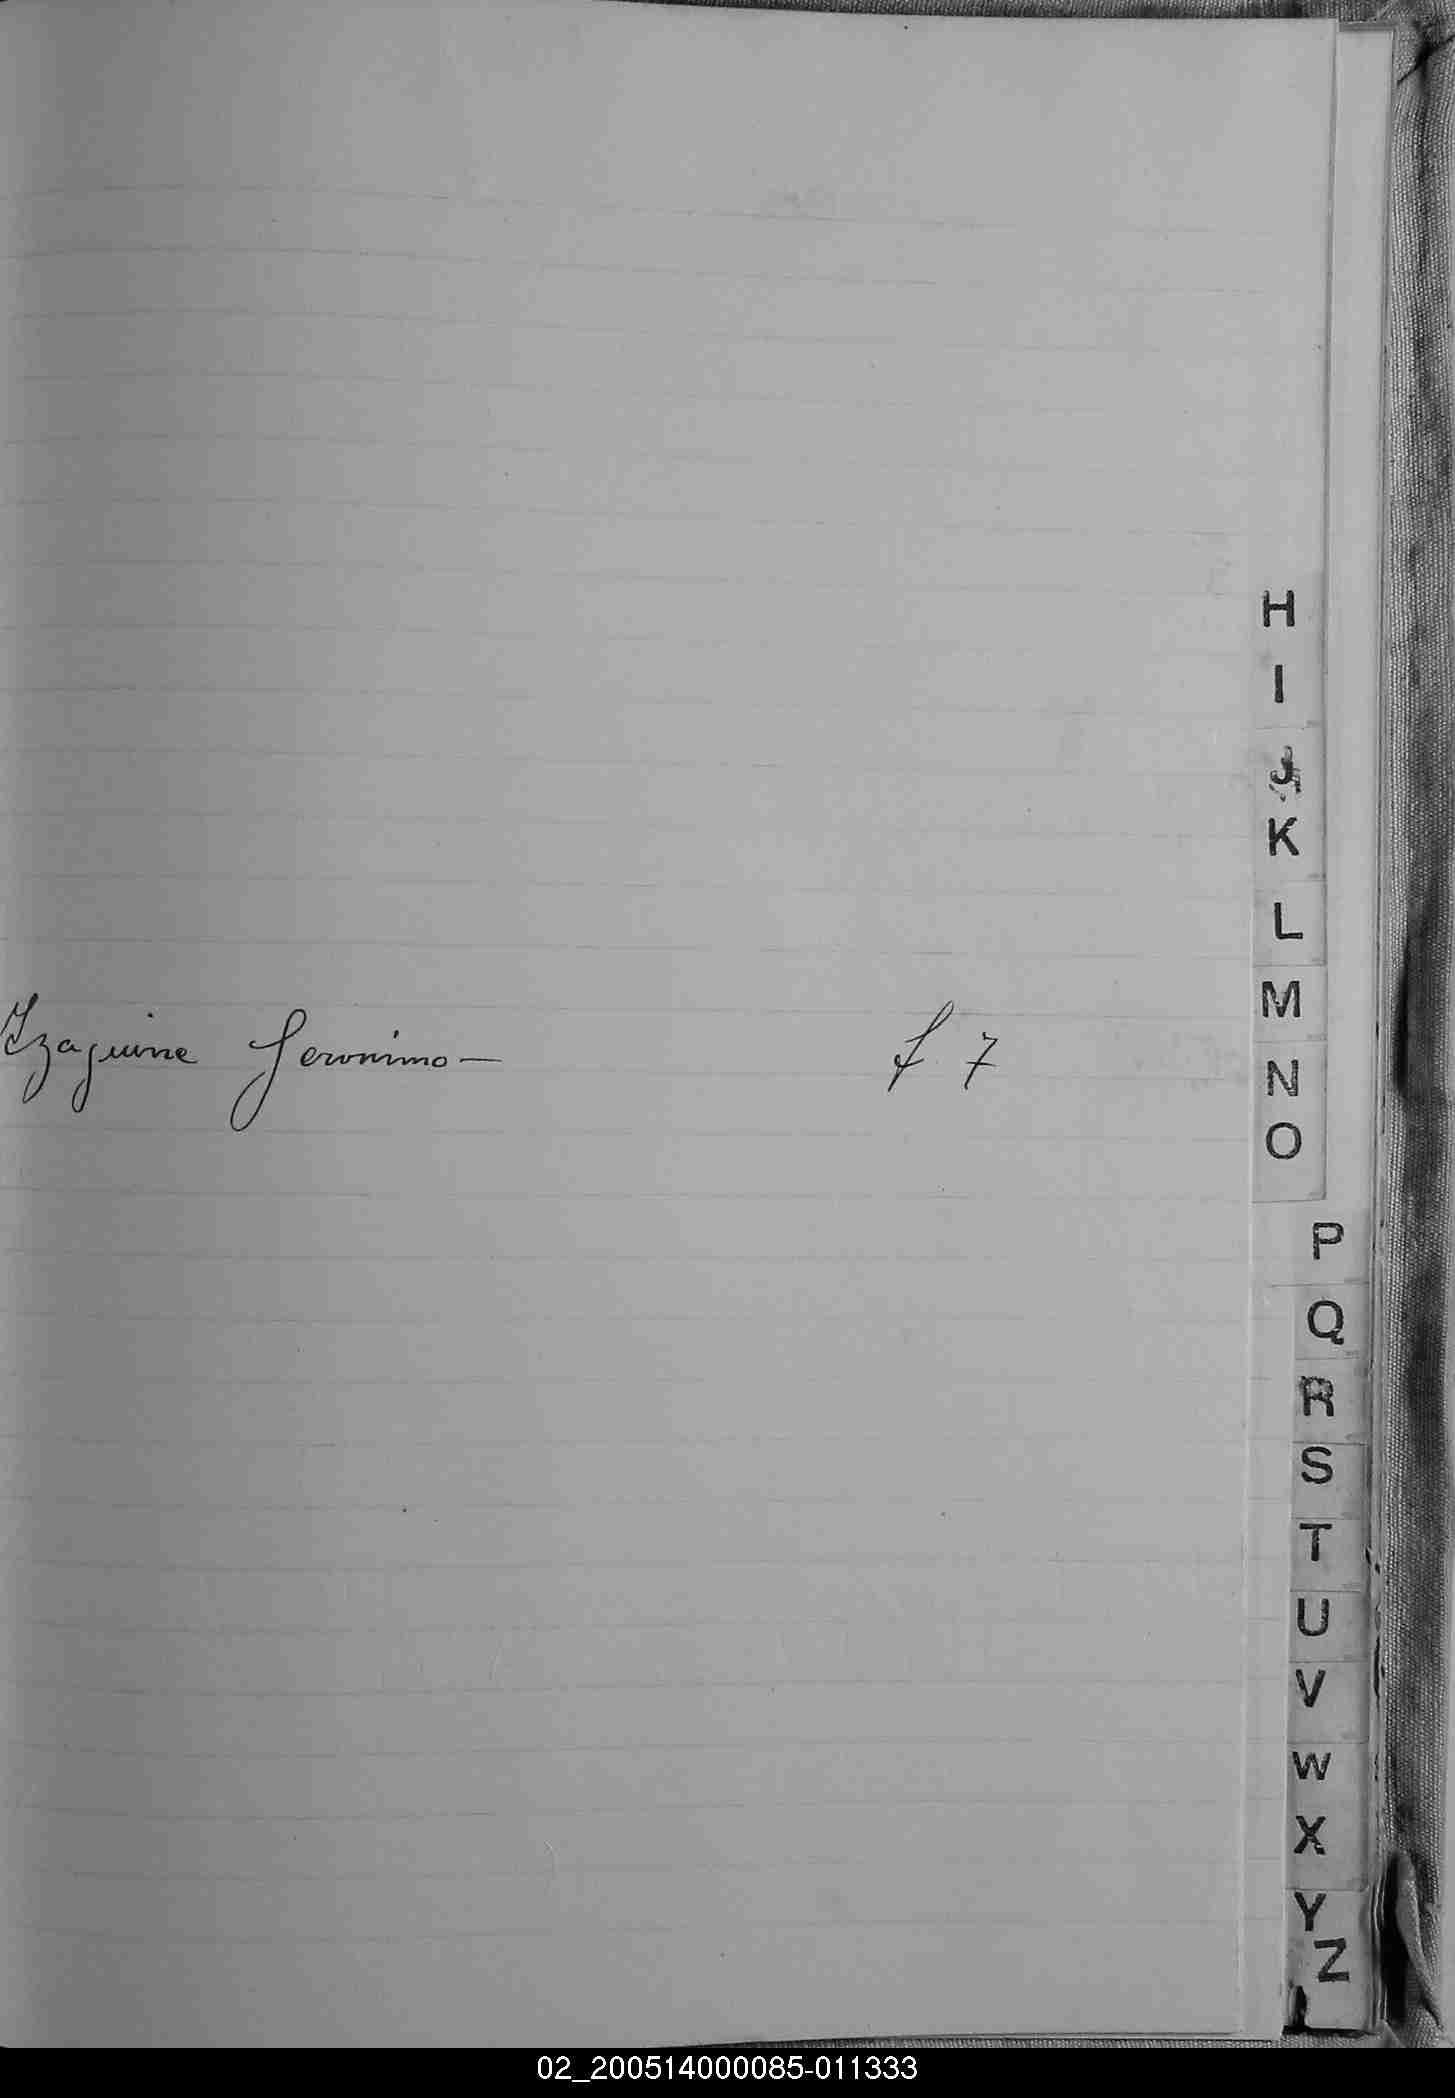 Izaguirre Jeronimo —
f. 7
H
I
J
K
L
M
N
O
P
Q
R
S
T
U
V
W
X
Y
Z
02_200514000085-011333